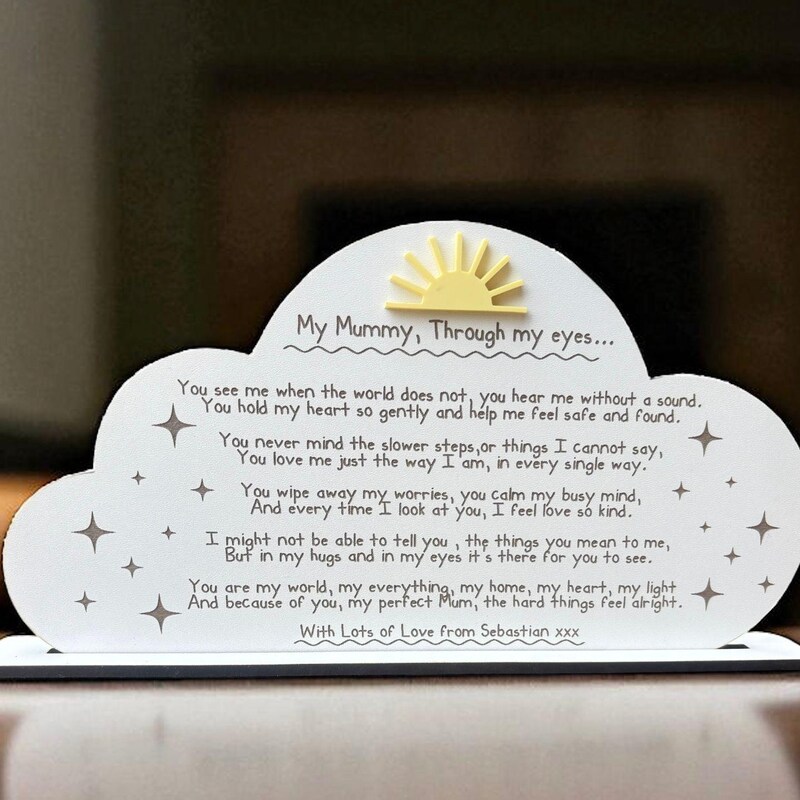 My Mummy, Through my eyes...
You see me when the world does not, you hear me without a sound.
You hold my heart so gently and help me feel safe and found.
You never mind the slower steps,or things I cannot say,
You love me just the way I am, in every single way.
You wipe away my worries, you calm my busy mind,
And every time I look at you, I feel love so kind.
I might not be able to tell you , the things you mean to me,
But in my hugs and in my eyes it's there for you to see.
You are my world, my everything, my home, my heart, my light
And because of you, my perfect Mum, the hard things feel alright.
With Lots of Love from Sebastian xxx